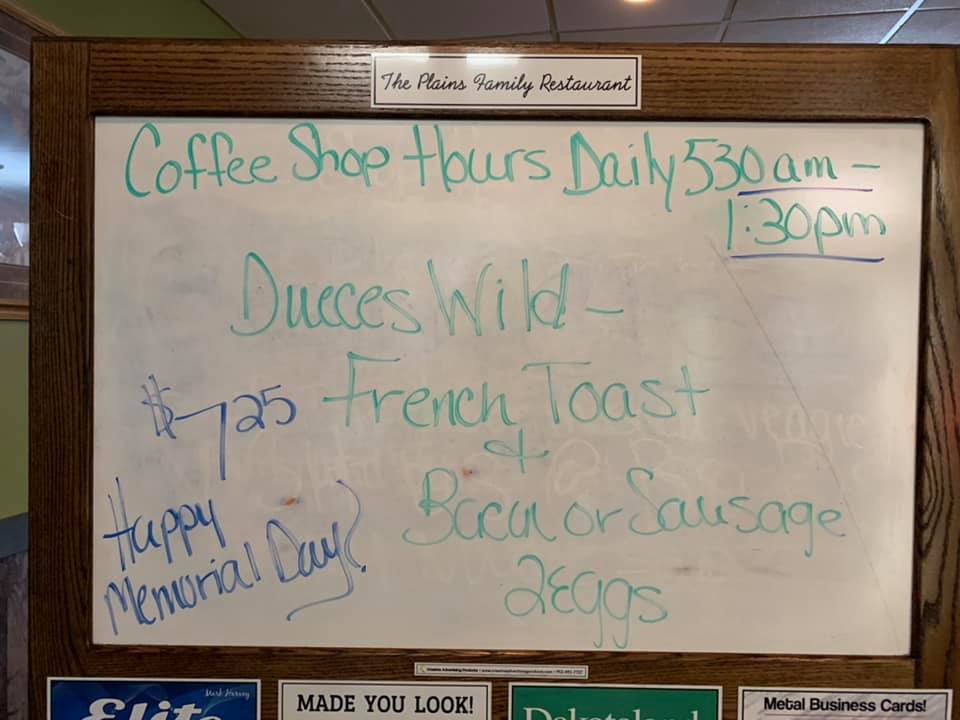 The Plains Family Restaurant
Coffee Shop Hours Daily 530 am -
1:30pm
Dueces Wild -
$7 25 French Toast
&
Bacon or Sausage
2 Eggs
Happy
Memorial Day!
Mark Harvey
Elite
MADE YOU LOOK!
Dakotaland
Metal Business Cards!